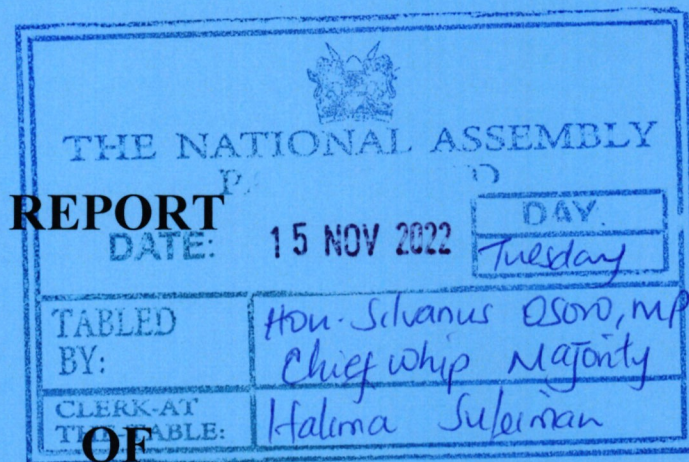 THE NATIONAL ASSEMBLY
REPORT
DATE: 15 NOV 2022
DAY.
Tuesday
TABLED BY:
Hon. Silvanus Osoro, MP
Chief Whip Majority
CLERK-AT THE TABLE:
Halima Suleiman
OF